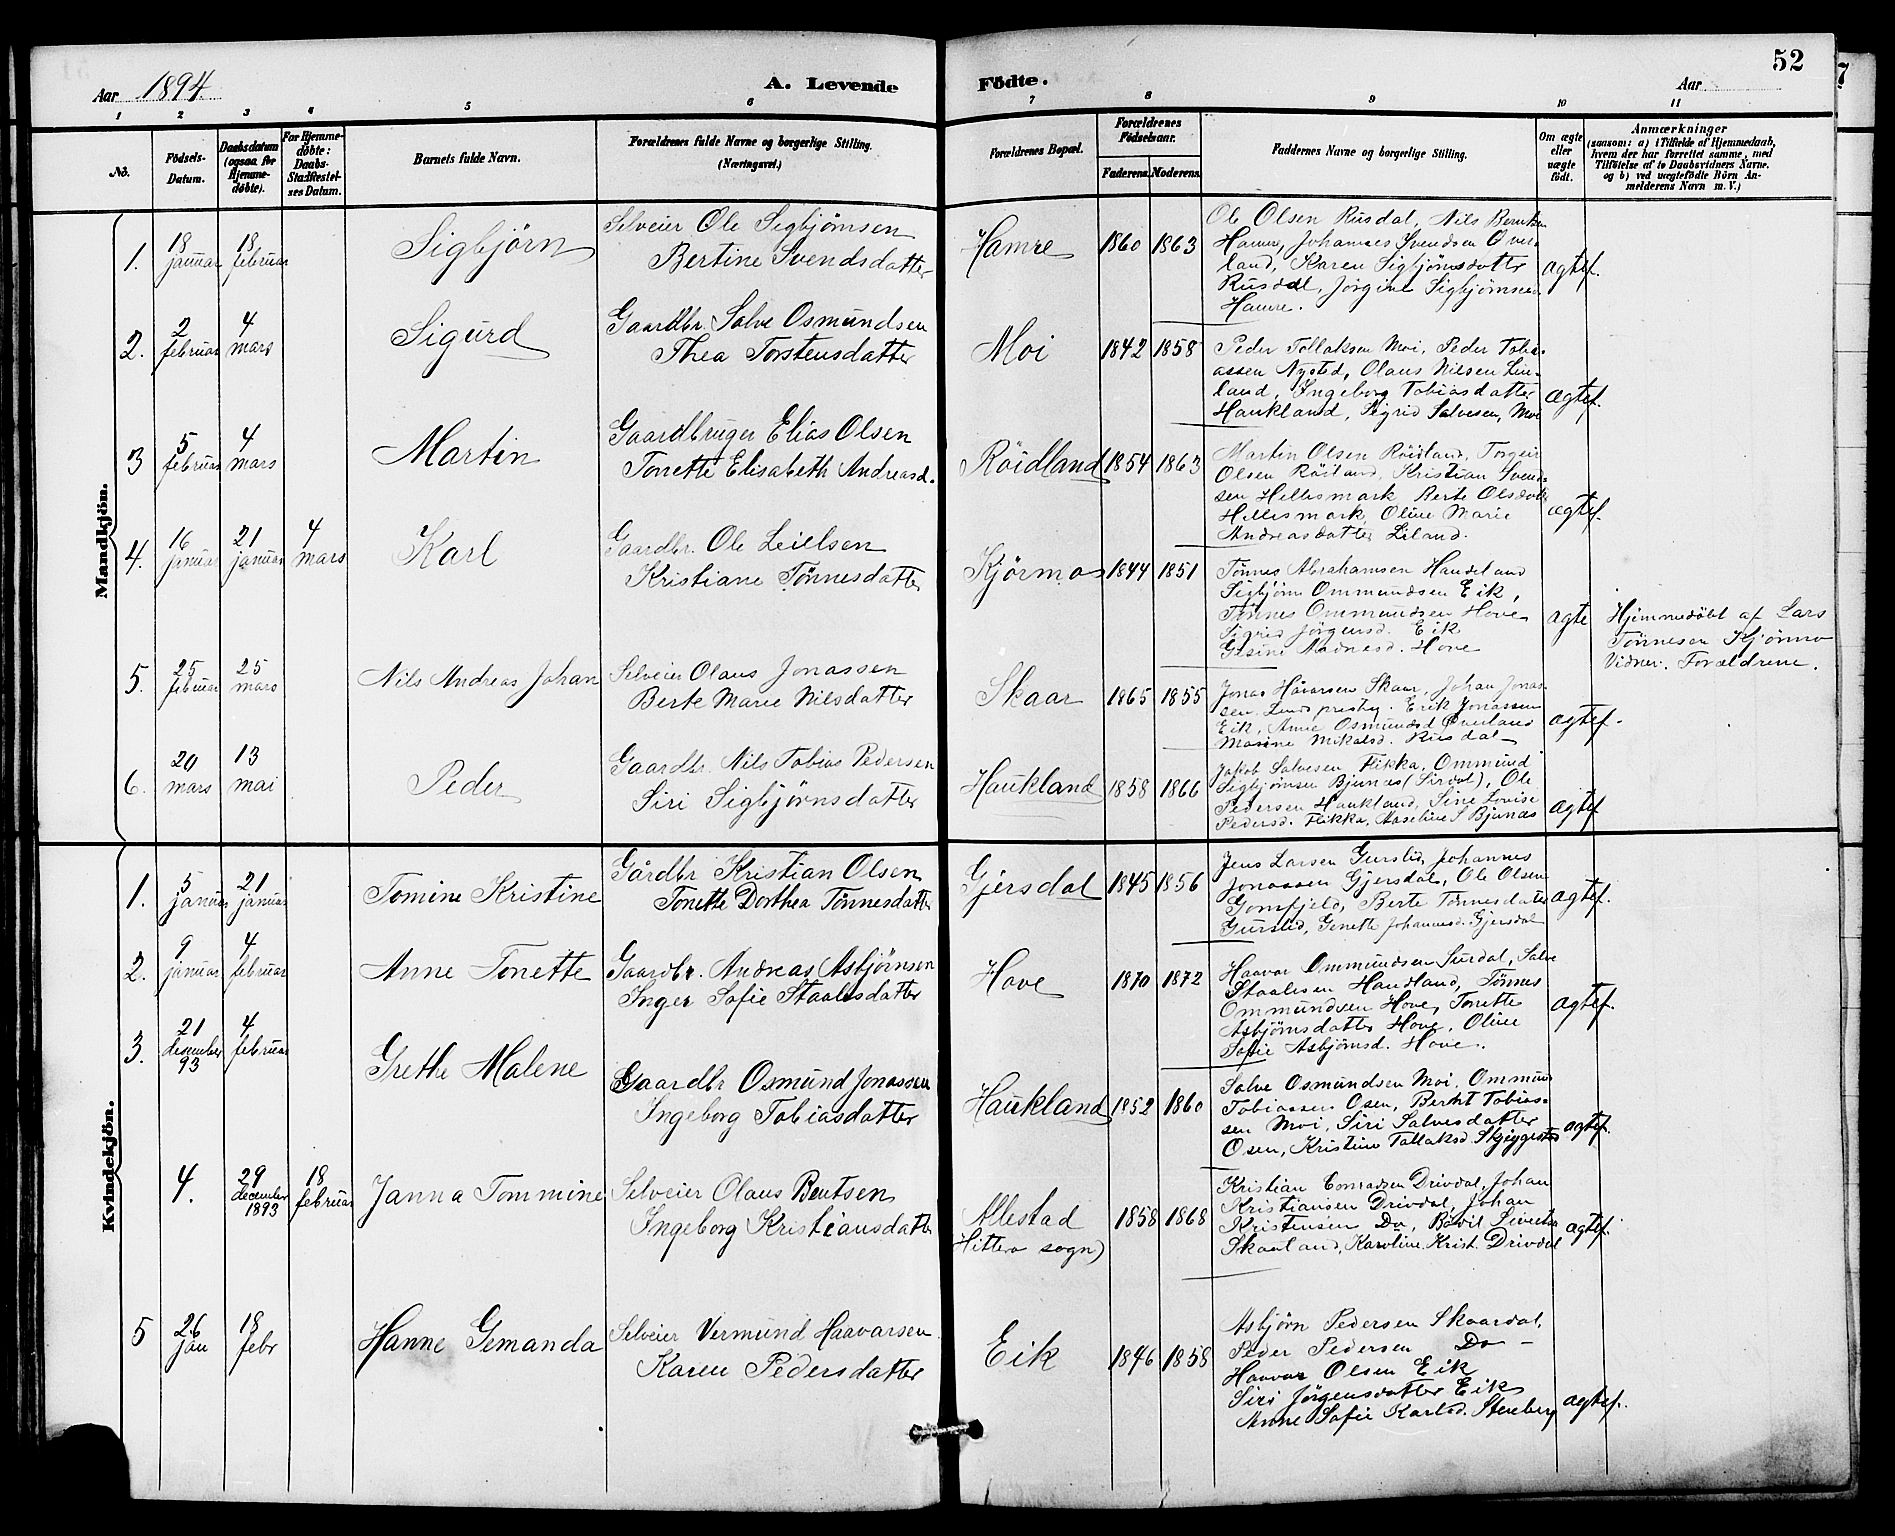 52
Aar 1894.
A. Levende
Födte.
Aar
1 2 3 4 5 6 7 8 9 10 11
No.
Födsels-
Datum.
Daabsdatum
(ogsaa for
Hjemme-
döbte).
For Hjemme-
döbte:
Daabs-
Stadfæstel-
ses Datum.
Barnets fulde Navn.
Forældrenes fulde Navne og borgerlige Stilling.
(Næringsvei.)
Forældrenes Bopæl.
Forældrenes
Födselsaar.
Faderens.
Moderens.
Faddernes Navne og borgerlige Stilling.
Om ægte
eller
uægte
födt.
Anmærkninger
(saasom: a) i Tilfælde af Hjemmedaab,
hvem der har forrettet samme, med
Tilföielse af to Daabsvidners Navne.
og b) ved uægtefödte Börn An-
melderens Navn m. V.)
Mandkjön.
1.
18
januar
18
februar
Sigbjörn
Selveier Ole Sigbjörnsen
Bertine Svendsdatter
Hamre
1860
1863
Ole Olsen Rusdal, Nils Berntsen
Hamre, Johannes Svendsen Över-
land, Karen Sigbjörnsdatter
Rusdal, Jörgine Sigbjörnsen
Hamre.
ægtef.
2.
2
februar
4
mars
Sigurd
Gaardbr. Salve Osmundsen
Thea Torstensdatter
Moi
1842
1858
Peder Tollaksen Moi, Peder Tobi-
assen Nysted, Olaus Nilsen Lin-
land, Ingeborg Tobiasdatter
Haukland, Sigrid Salvesen, Moi
ægtef.
3
5
februar
4
mars
Martin
Gaardbruger Elias Olsen
Tonette Elisabeth Andreasd.
Röidland
1854
1863
Martin Olsen Röidland, Torgeir
Olsen Röiland, Kristian Svend-
sen Hellesmark Berte Olsdatter
Hellesmark, Oline Marie
Andreasdatter Liland.
ægtef.
4.
16
januar
21
januar
4
mars
Karl
Gaardbr. Ole Leielsen
Kristiane Tönnesdatter
Kjörmo
1844
1851
Tönnes Abrahamsen Handeland
Sigbjörn Ommundsen Eik,
Tönnes Ommundsen Hove
Sigrid Jörgensd. Eik
Gesine Aadnesd. Hove
ægte
Hjemmedöbt af Lars
Tönnesen Kjörmo
Vidner. Forældrene.
5.
25
februar
25
mars
Nils Andreas Johan
Selveier Olaus Jonassen
Berte Marie Nilsdatter
Skaar
1865
1855
Jonas Håvarsen Skaar, Johan Jonas-
sen, Lunds prestegj. Erik Jonassen
Eik, Anne Osmundsd Överland
Masine Mikalsd. Rusdal
ægtef.
6.
20
mars
13
mai
Peder
Gaardbr. Nils Tobias Pedersen
Siri Sigbjörnsdatter
Haukland
1858
1866
Jakob Salvesen Flikka, Ommund
Sigbjörnsen Bjunæs (Sirdal), Ole
Pedersen Haukland, Sine Lovise
Pedersd. Flikka, Aaseline S Bjunæs
ægtef
Kvindekjön.
1.
5
januar
21
januar
Tomine Kristine
Gårdbr Kristian Olsen
Tonette Dorthea Tönnesdatter
Gjersdal
1845
1856
Jens Larsen Gurslid, Johannes
Jonassen Gjersdal, Ole Olsen
Gomfjeld, Berte Tönnesdatter
Gurslid, Genette Johannesd. Gjersdal
ægtef.
2.
9
januar
4
februar
Anne Tonette
Gaardbr. Andreas Asbjörnsen
Inger Sofie Staalesdatter
Hove
1870
1872
Haavar Ommundsen Surdal, Salve
Staalesen Handland, Tönnes
Ommundsen Hove, Tonette
Asbjörnsdatter Hove, Oline
Sofie Asbjörnsd. Hove.
ægtef.
3.
21
desember
93
4
februar
Grethe Malene
Gaardbr Osmund Jonassen
Ingeborg Tobiasdatter
Haukland
1852
1860
Salve Osmundsen Moi, Ommund
Tobiassen Osen, Bernt Tobias-
sen Moi, Siri Salvesdatter
Osen, Kristine Tallaksd. Skjeggestad
ægtef.
4.
29
december
1893
18
februar
Janna Tommine
Selveier Olaus Bentsen
Ingeborg Kristiansdatter
Allestad
Hitterø sogn)
1858
1868
Kristian Conradsen Drivdal, Johan
Kristiansen Drivdal, Johan
Kristensen Do, Bovil
Skaaland, Karoline Krist. Drivdal
ægtef.
5
26
jan
18
febr
Hanne Gemanda
Selveier Vermund Haavarsen
Karen Pedersdatter
Eik
1846
1858
Asbjörn Pedersen Skaardal,
Peder Pedersen Do -
Haavar Olsen Eik
Siri Jörgensdatter Eik
Anne Sofie Karlsd. Steneberg
ægtef.